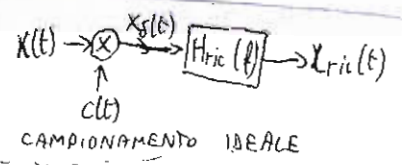 x(t) → ⊗ xδ(t) → Hric(f) → xric(t)
c(t)
CAMPIONAMENTO IDEALE